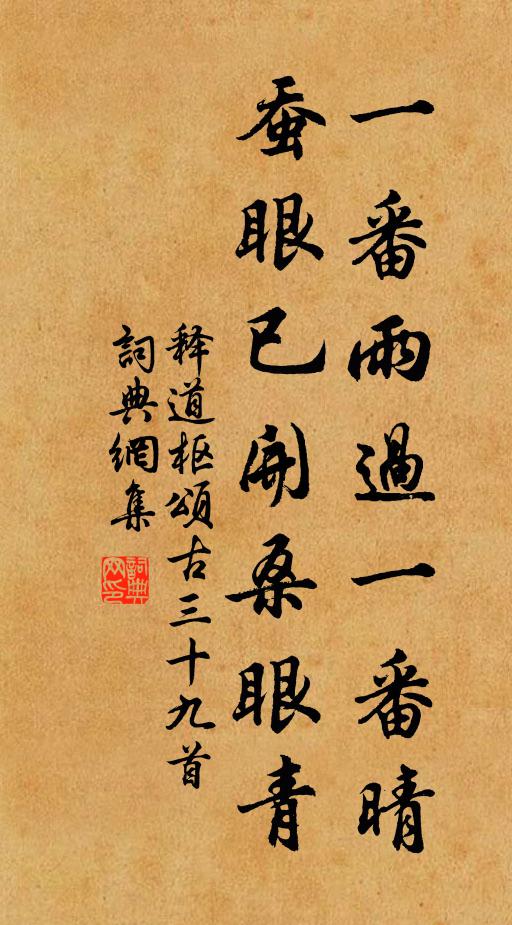 一番雨過一番晴
蚕眼已開桑眼青
释道枢頌古三十九首
詞典網集
詞典网印